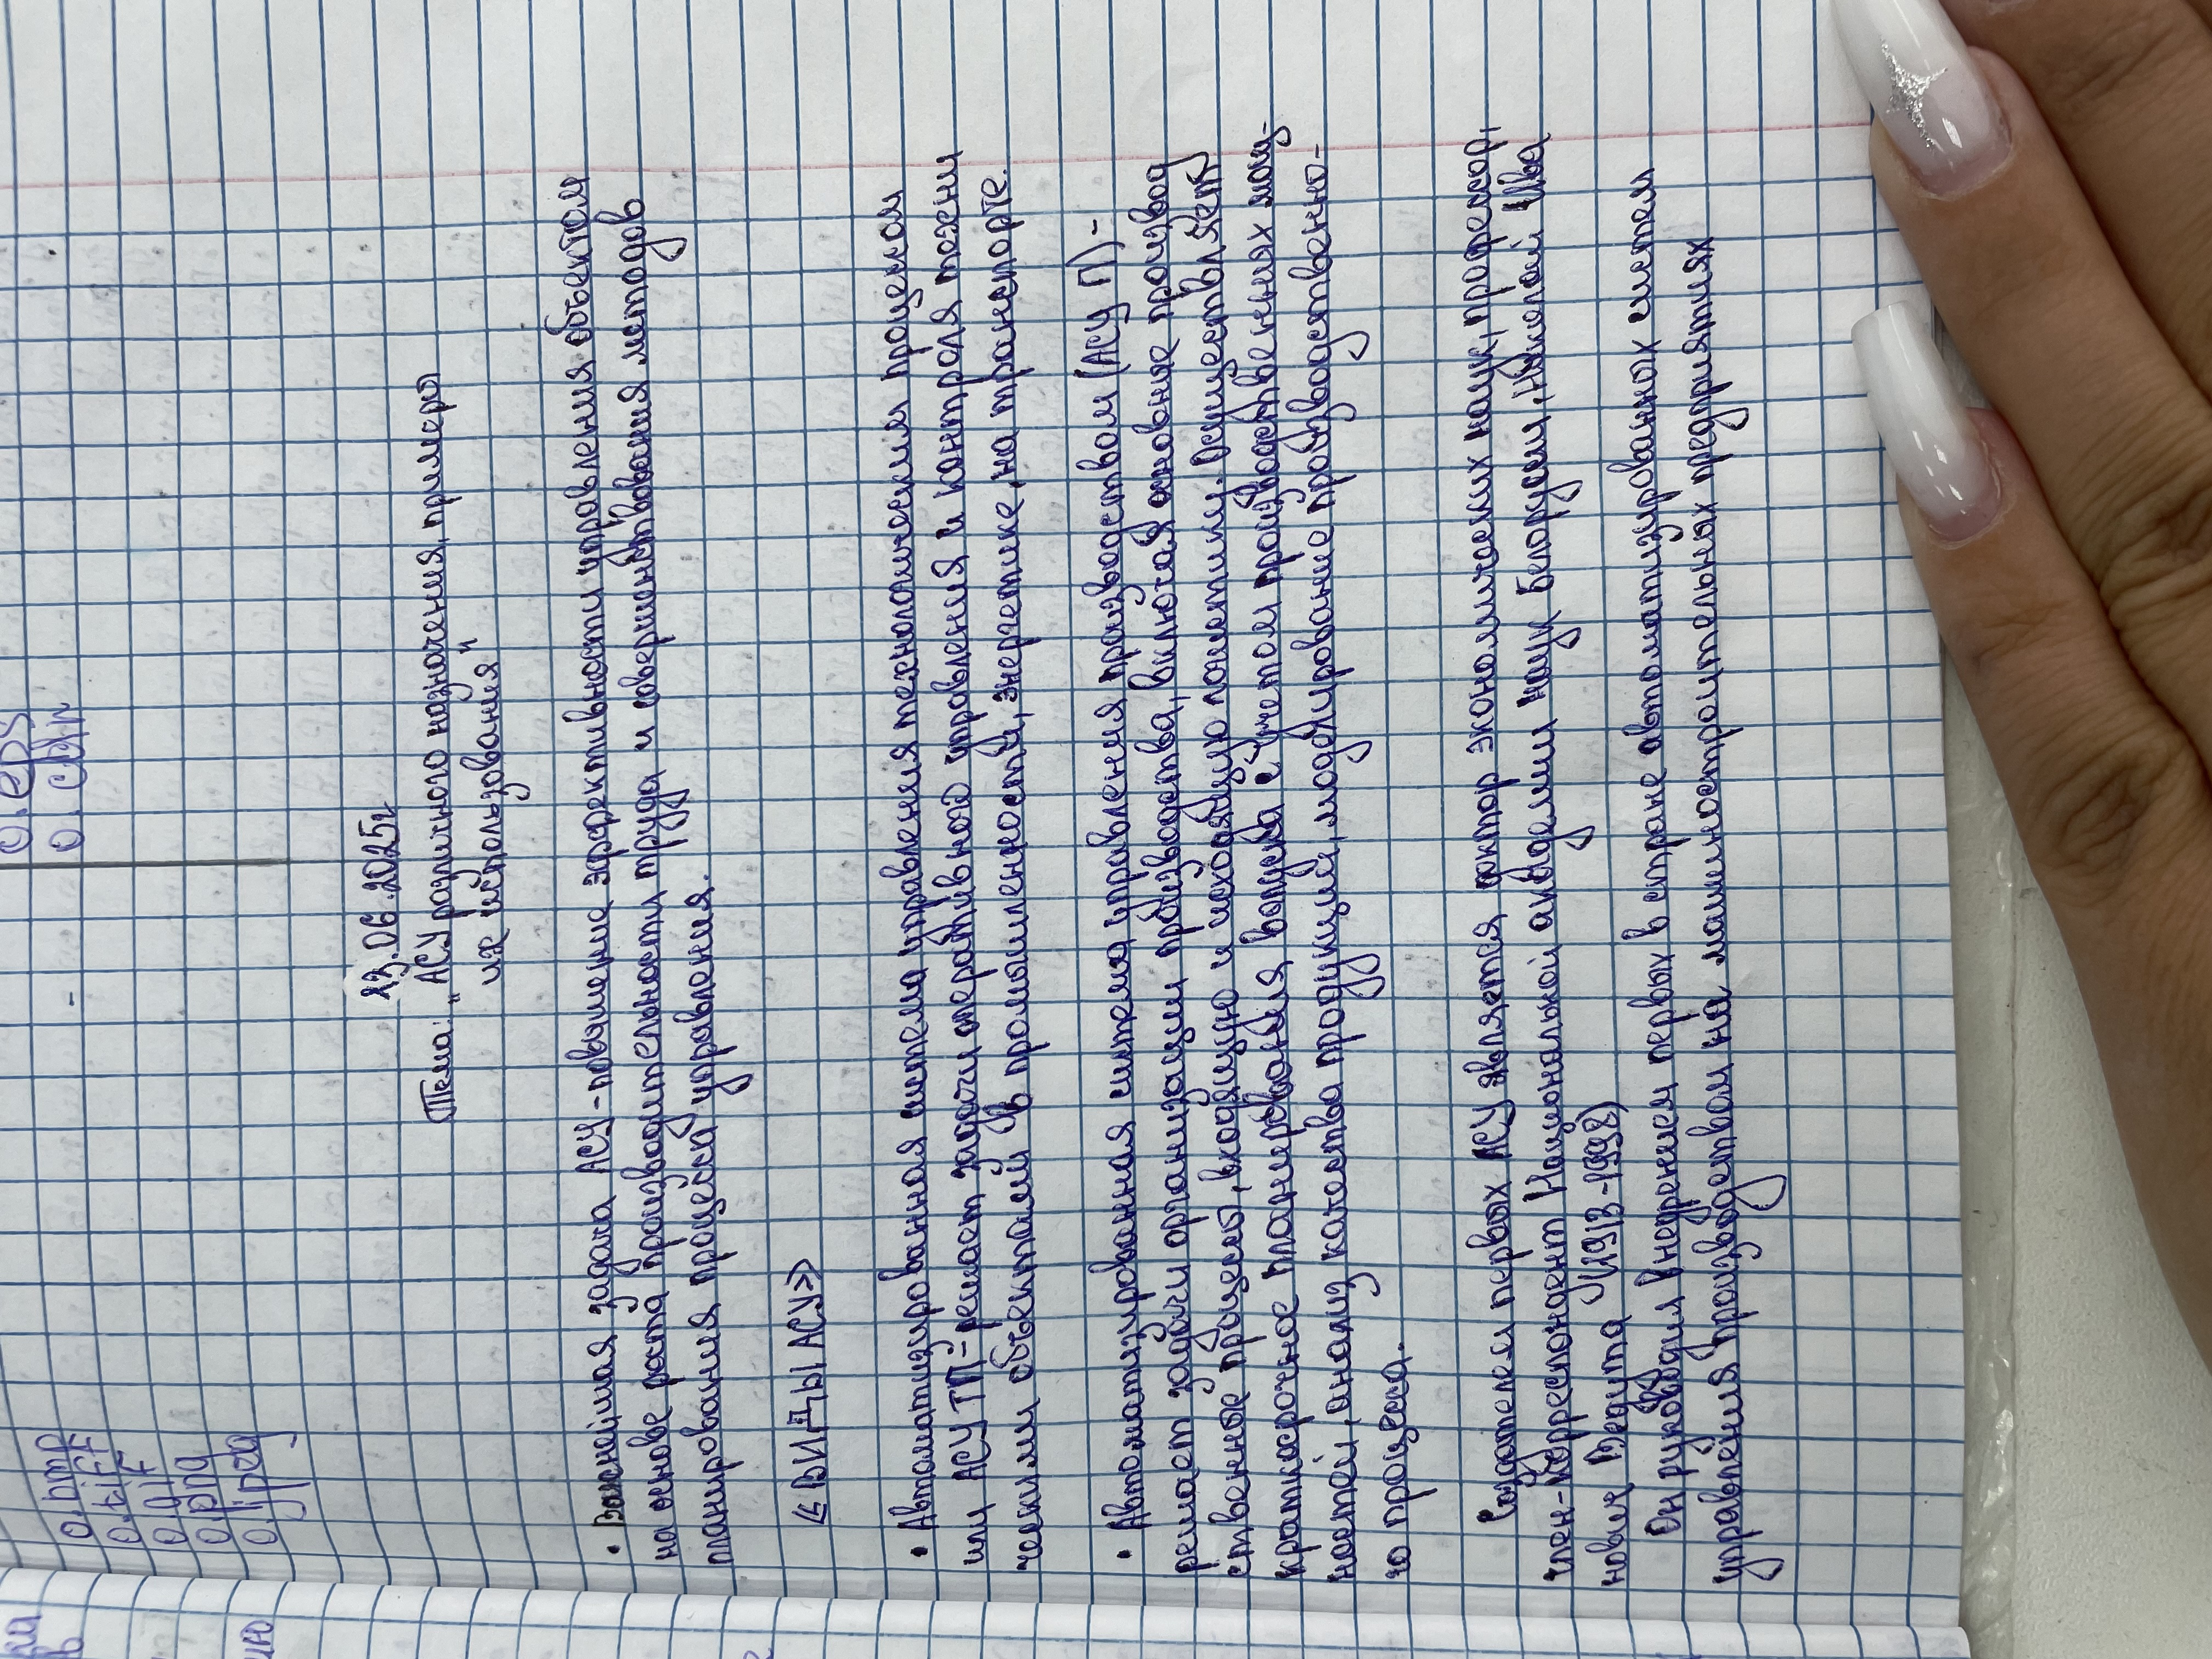 0.bmp
0.tiff
0.gif
0.png
0.jpeg
0.eps
0.cdr
23.06.2025г
Тема: "АСУ различного назначения, примеры
их использования"
• Важнейшая задача АСУ - повышение эффективности управления объектом
на основе роста производительности труда и совершенствования методов
планирования процесса управления.
«ВИДЫ АСУ»
• Автоматизированная система управления технологическим процессом
или АСУ ТП - решает задачи оперативного управления и контроля техни
ческими объектами в промышленности, энергетике, на транспорте.
• Автоматизированная система управления производством (АСУ П) -
решает задачи организации производства, включая основные производ
ственные процессы, входящую и исходящую логистику. Осуществляет
краткосрочное планирование выпуска с учётом производственных мощ-
ностей, анализ качества продукции, моделирование производственно-
го процесса.
Создателем первых АСУ является доктор экономических наук, профессор,
член-корреспондент Национальной академии наук Белоруссии, Николай Ива
нович Ведута (1913-1998)
Он руководил внедрением первых в стране автоматизированных систем
управления производством на машиностроительных предприятиях